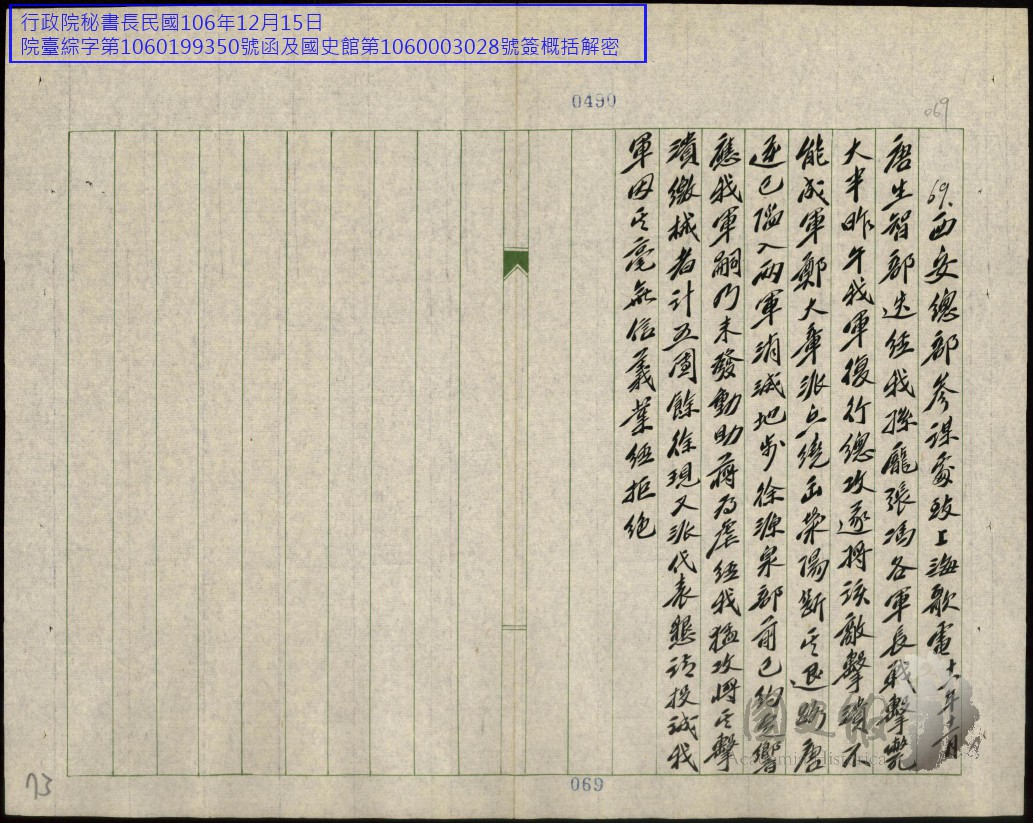 行政院秘書長民國106年12月15日
院臺綜字第1060199350號函及國史館第1060003028號簽概括解密
0490
069
69.西安總部參謀處致上海歌電十八年十一月
唐生智部迭經我孫龐張馮各軍長截擊斃
大半昨午我軍復行總攻遂將該敵擊潰不
能成軍鄭大章派兵繞出榮陽斷其退路唐
逆已陷入兩軍消滅地步徐源泉部前已約為響
應我軍嗣乃未發動助蔣為虐經我猛攻將其擊
潰繳械者計五團餘徐現又派代表懇請投誠我
軍因其毫無信義業經拒絕
069
73
國史館
Academia Historica